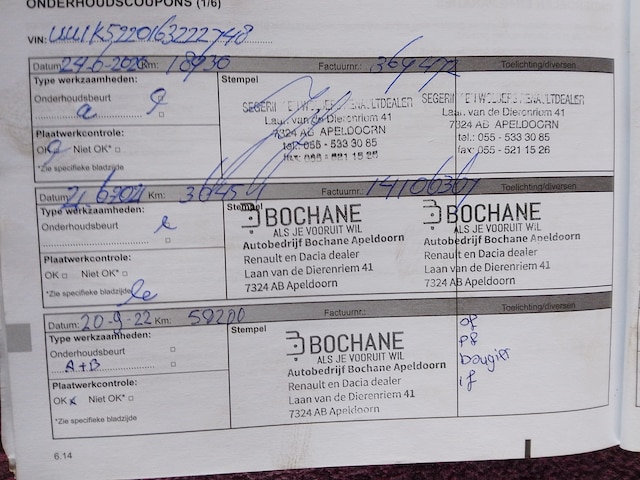 ONDERHOUDSCOUPONS (1/6)
VIN:
Datum: 24-6-2020 Km: 18930 Factuurnr.: Toelichting/diversen
Type werkzaamheden:
Stempel
Onderhoudsbeurt
a
Plaatwerkcontrole:
OK Niet OK*
*Zie specifieke bladzijde
Laan van de Dierenriem 41
7324 AB APELDOORN
tel.: 055 - 533 30 85
fax: 055 - 521 15 26
Laan van de Dierenriem 41
7324 AB APELDOORN
tel.: 055 - 533 30 85
fax: 055 - 521 15 26
Datum: Km: Factuurnr.: Toelichting/diversen
Type werkzaamheden:
Stempel
Onderhoudsbeurt
Plaatwerkcontrole:
OK Niet OK*
*Zie specifieke bladzijde
BOCHANE
ALS JE VOORUIT WIL
Autobedrijf Bochane Apeldoorn
Renault en Dacia dealer
Laan van de Dierenriem 41
7324 AB Apeldoorn
BOCHANE
ALS JE VOORUIT WIL
Autobedrijf Bochane Apeldoorn
Renault en Dacia dealer
Laan van de Dierenriem 41
7324 AB Apeldoorn
Datum: 20-9-22 Km: 59200 Factuurnr.: Toelichting/diversen
Type werkzaamheden:
Stempel
Onderhoudsbeurt
A+B
Plaatwerkcontrole:
OK Niet OK*
*Zie specifieke bladzijde
BOCHANE
ALS JE VOORUIT WIL
Autobedrijf Bochane Apeldoorn
Renault en Dacia dealer
Laan van de Dierenriem 41
7324 AB Apeldoorn
of
pf
bougies
if
6.14